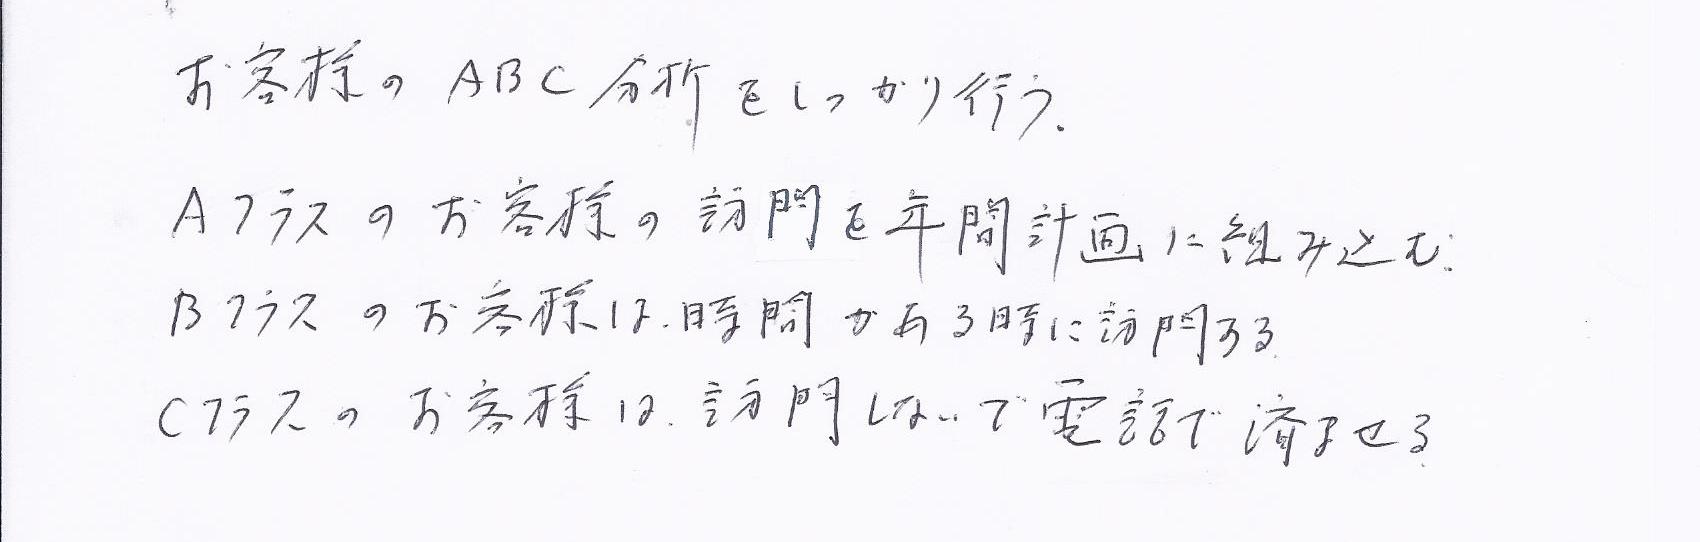 お客様のABC分析をしっかり行う.
Aクラスのお客様の訪問を年間計画に組み込む.
Bクラスのお客様は.時間がある時に訪問する
Cクラスのお客様は.訪問しないで電話で済ませる